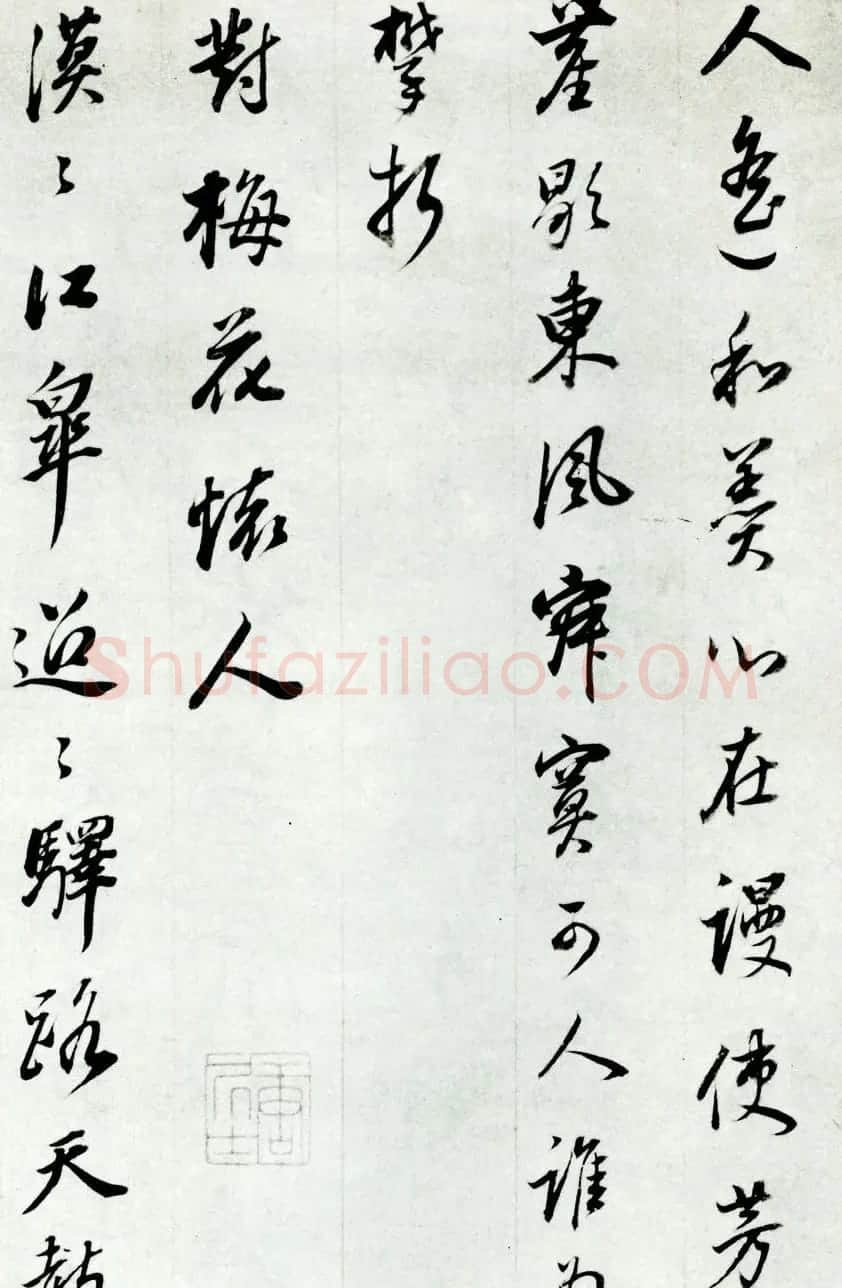 人和羹心在謾使芳
塵歇東風寂寞可人誰為
攀折
對梅花懷人
漠〻江皋迢〻驛路天教
Shufaziliao.COM